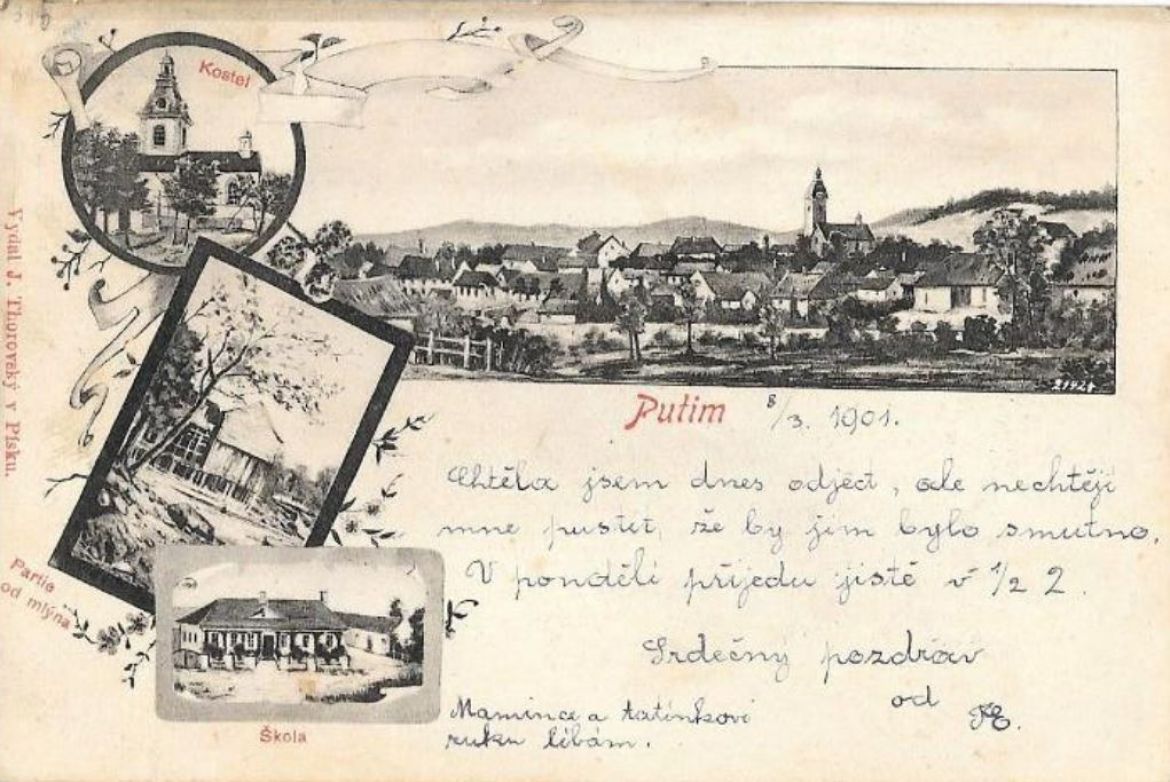 Kostel
Vydal J. Thorovský v Písku.
21424
Putim
8/3. 1901.
Chtěla jsem dnes odject, ale nechtěji
mne pustit, že by jim bylo smutno.
V ponděli přijedu jistě v 1/2 2.
Srdečný pozdrav
od
Partie
od mlýna
Mamince a tatínkovi
ruku líbám.
Škola